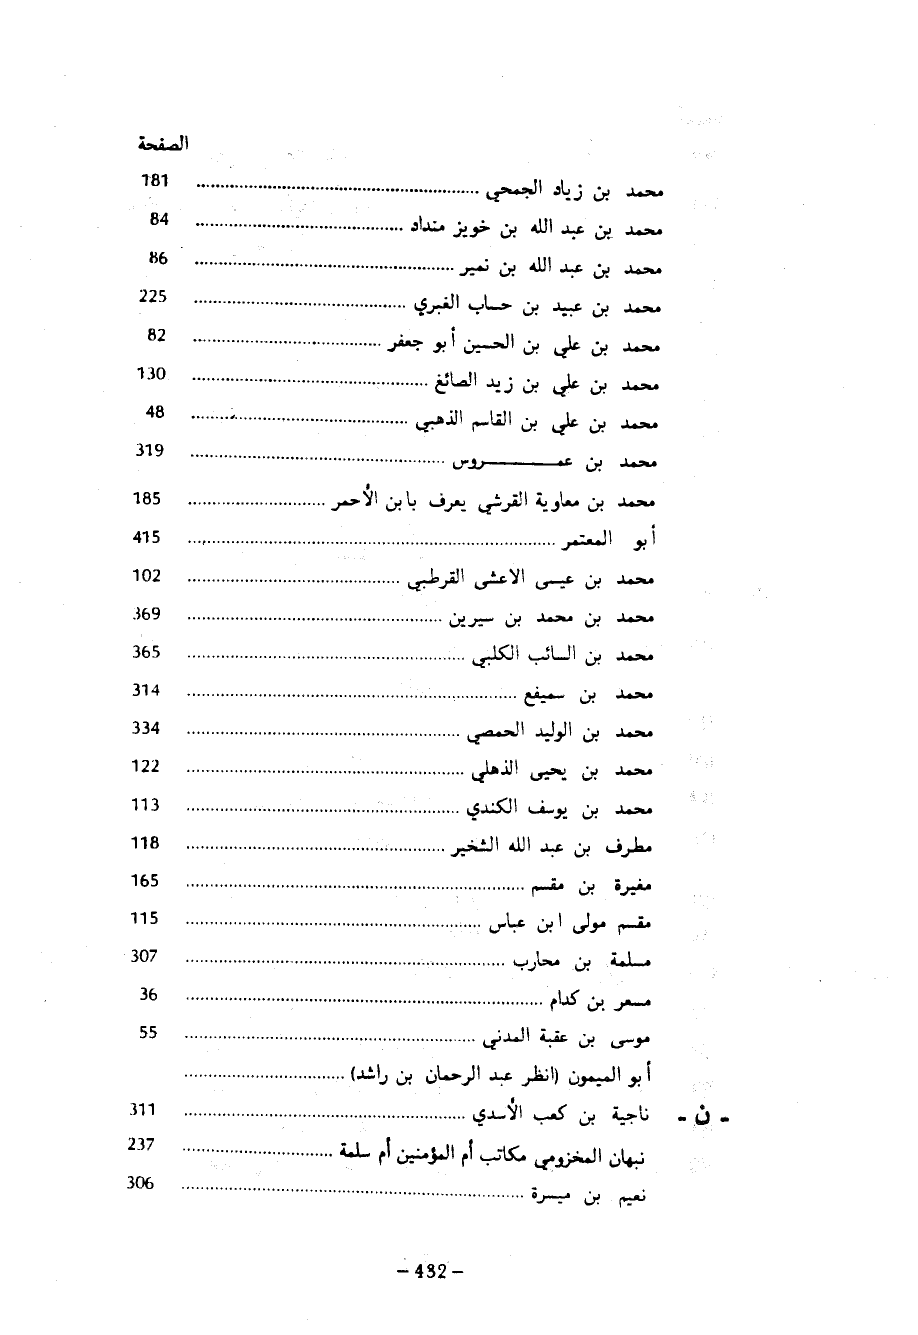 الصفحة
محمد بن زياد الجمحي ........ 181
محمد بن عبد الله بن خويز منداد ........ 84
محمد بن عبد الله بن نمير ........ 86
محمد بن عبيد بن حساب الغبري ........ 225
محمد بن علي بن الحسين أبو جعفر ........ 82
محمد بن علي بن زيد الصائغ ........ 130
محمد بن علي بن القاسم الذهبي ........ 48
محمد بن عمـــــروس ........ 319
محمد بن معاوية القرشي يعرف بابن الأحمر ........ 185
أبو المعتمر ........ 415
محمد بن عيسى الاعشى القرطبي ........ 102
محمد بن محمد بن سيرين ........ 369
محمد بن السائب الكلبي ........ 365
محمد بن سميفع ........ 314
محمد بن الوليد الحمصي ........ 334
محمد بن يحيى الذهلي ........ 122
محمد بن يوسف الكندي ........ 113
مطرف بن عبد الله الشخير ........ 118
مغيرة بن مقسم ........ 165
مقسم مولى ابن عباس ........ 115
مسلمة بن محارب ........ 307
مسعر بن كدام ........ 36
موسى بن عقبة المدني ........ 55
أبو الميمون (انظر عبد الرحمان بن راشد) ........
- ن - ناجية بن كعب الأسدي ........ 311
نبهان المخزومي مكاتب أم المؤمنين أم سلمة ........ 237
نعيم بن ميسرة ........ 306
- 482 -